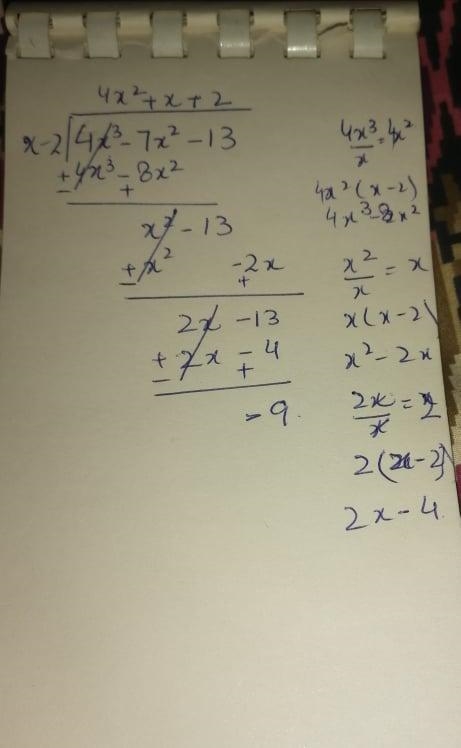 4x² + x + 2
x-2 | 4x³ - 7x² - 13
+ 4x³ - 8x²
- +
x² - 13
+ x² - 2x
- +
2x - 13
+ 2x - 4
- +
- 9.
4x³/x = 4x²
4x² (x - 2)
4x³ - 8x²
x²/x = x
x(x - 2)
x² - 2x
2x/x = 2
2(x - 2)
2x - 4.